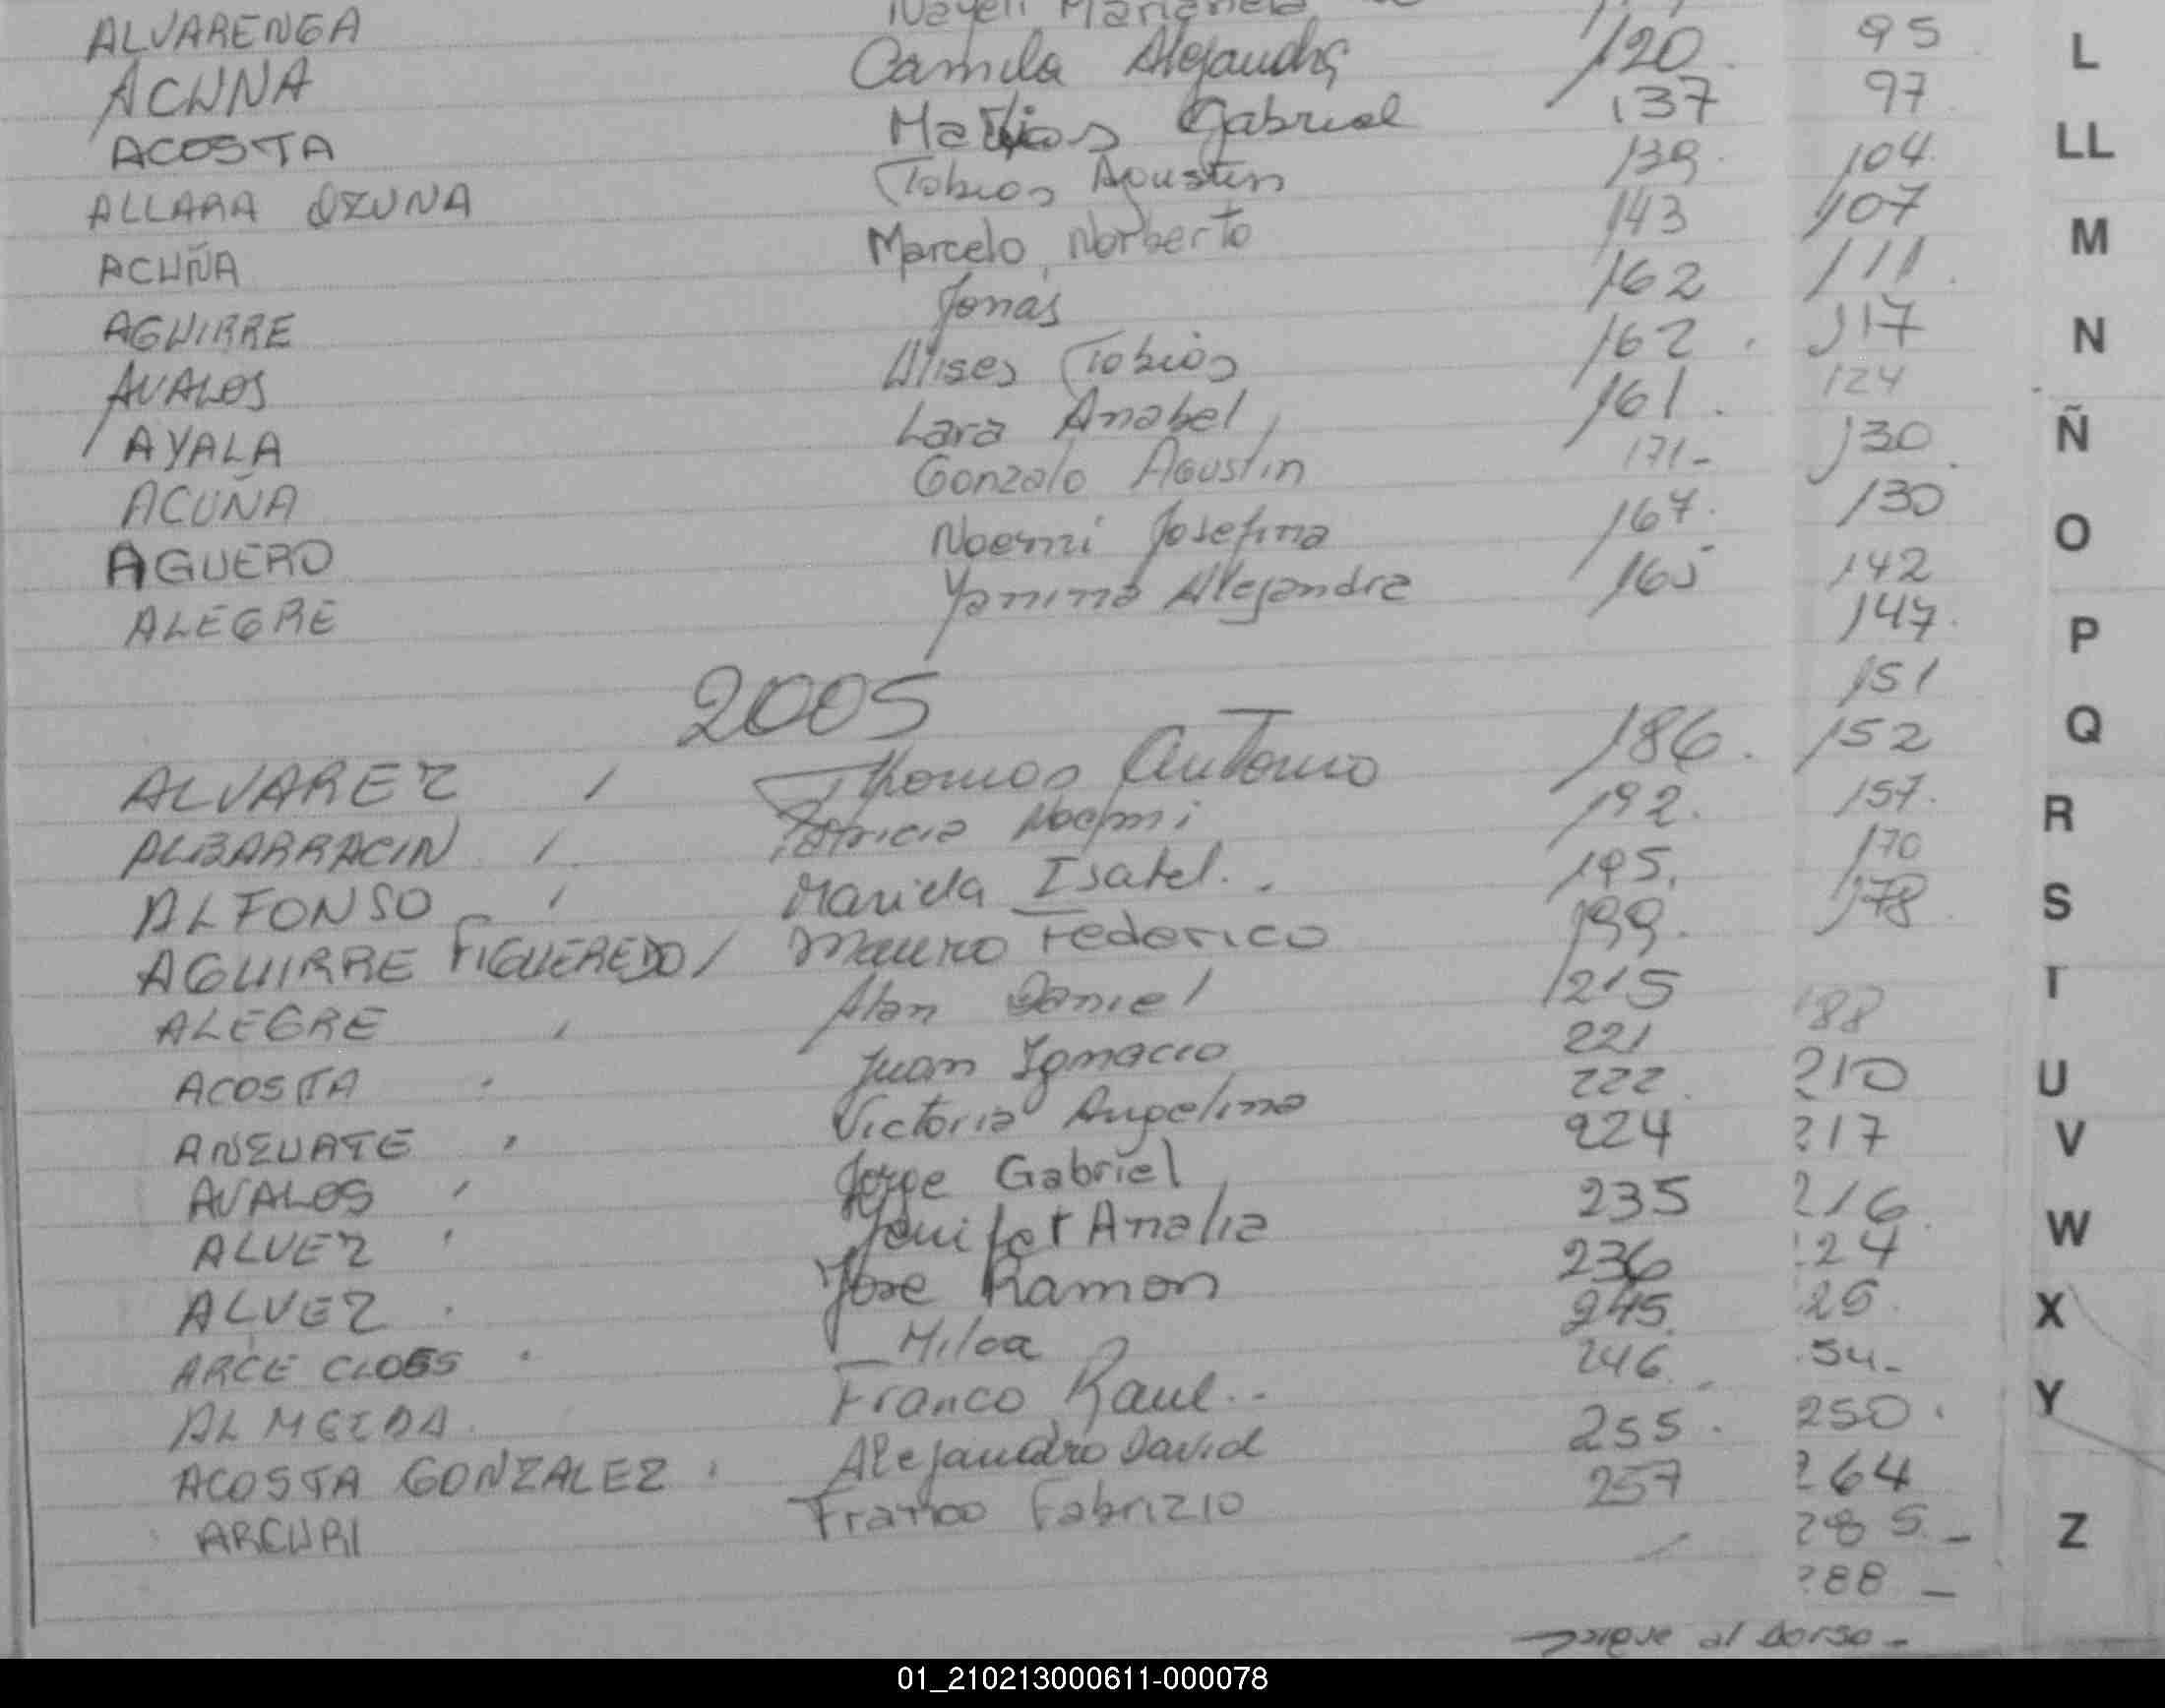 ALVARENGA Nayeli Marianela 95 L
ACUÑA Camila Alejandra 120 97
ACOSTA Matias Gabriel 137 104 LL
ALLARA OZUNA Tobias Agustin 139 107
ACUÑA Marcelo Norberto 143 111 M
AGUIRRE Jonás 162 117 N
AVALOS Ulises Tobias 162 124
AYALA Lara Anabel 161 130 Ñ
ACUÑA Gonzalo Agustin 171- 130
AGUERO Noemi Josefina 167 142 O
ALEGRE Yanina Alejandra 165 147 P
151
2005
ALVAREZ / Thomas Antonio 186. 152 Q
ALBARRACIN / Patricia Noemi 192. 157. R
ALFONSO / Mariela Isabel. 195. 170
AGUIRRE FIGUEREDO / Mauro Federico 199. 178 S
ALEGRE / Alan Daniel 215 188 T
ACOSTA Juan Ignacio 221 210 U
ANZUATE Victoria Angelina 222 217 V
AVALOS Jorge Gabriel 224 216
ALVEZ Yenifer Analia 235 224 W
ALVEZ Jose Ramon 236 X
ARCE CLOSS Milca 245
ALMEIDA Franco Raul 246 250 Y
ACOSTA GONZALEZ Alejandro David 255. 264
ARCURI Franco Fabrizio 257 285- Z
288-
sigue al dorso-
01_210213000611-000078